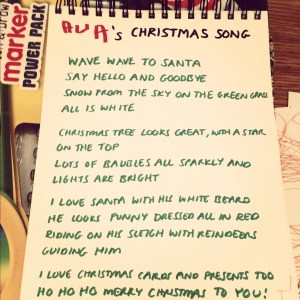 marker
POWER PACK
AVA's CHRISTMAS SONG
WAVE WAVE TO SANTA
SAY HELLO AND GOODBYE
SNOW FROM THE SKY ON THE GREEN GRASS
ALL IS WHITE
CHRISTMAS TREE LOOKS GREAT, WITH A STAR
ON THE TOP
LOTS OF BAUBLES ALL SPARKLY AND
LIGHTS ARE BRIGHT
I LOVE SANTA WITH HIS WHITE BEARD
HE LOOKS FUNNY DRESSED ALL IN RED
RIDING ON HIS SLEIGH WITH REINDEERS
GUIDING HIM
I LOVE CHRISTMAS CARDS AND PRESENTS TOO
HO HO HO MERRY CHRISTMAS TO YOU!